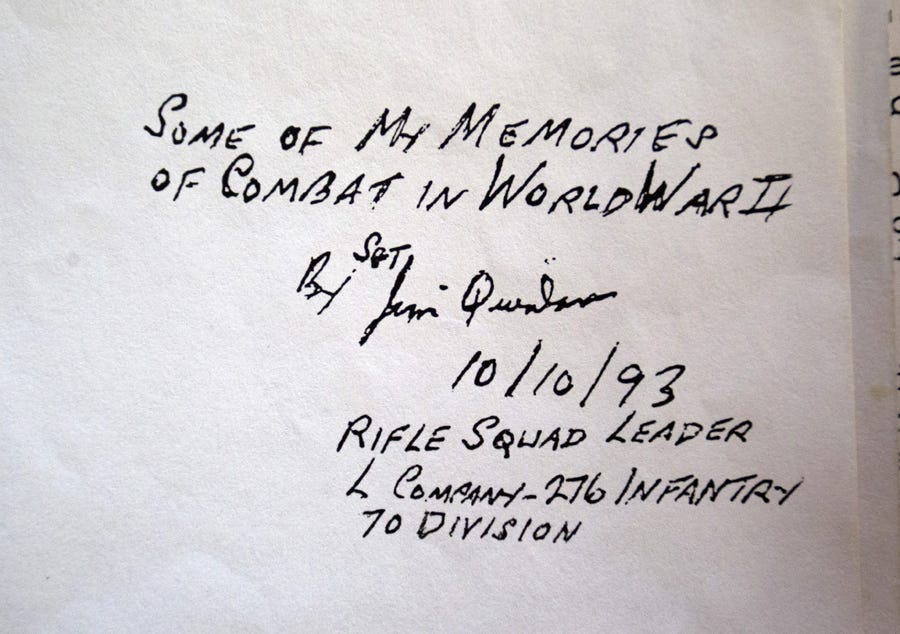 SOME OF MY MEMORIES
OF COMBAT IN WORLD WAR II
BY SGT Jim
10/10/93
RIFLE SQUAD LEADER
L COMPANY-276 INFANTRY
70 DIVISION